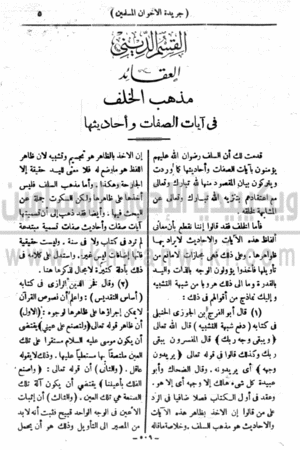 ( جريدة الاخوان المسلمين )
٥
القسم الديني
العقائد
مذهب الخلف
فى آيات الصفات وأحاديثها
قدمت لك أن السلف رضوان الله عليهم
يؤمنون بآيات الصفات وأحاديثها كما وردت
ويتركون بيان المقصود منها لله تبارك وتعالى
مع اعتقادهم بتنزيه الله تبارك وتعالى عن
المشابهة لخلقه .
فأما الخلف فقد قالوا إننا نقطع بأن معانى
ألفاظ هذه الآيات والأحاديث لا يراد بها
ظواهرها . وعلى ذلك فهى مجازات لا مانع من
تأويلها فأخذوا يؤولون الوجه بالذات واليد
بالقدرة وما الى ذلك هروبا من شبهة التشبيه
وإليك نماذج من أقوالهم فى ذلك :
(١) قال أبو الفرج ابن الجوزى الحنبلى
فى كتابه ( دفع شبهة التشبيه ) قال الله تعالى
( ويبقى وجه ربك ) قال المفسرون يبقى
ربك وكذلك قالوا فى قوله تعالى ( يريدون
وجهه ) أى يريدونه . وقال الضحاك وأبو
عبيدة كل شىء هالك إلا وجهه أى إلا هو .
وعقد فى أول الكتاب فصلا ضافيا فى الرد
على من قالوا إن الاخذ بظاهر هذه الآيات
والأحاديث هو مذهب السلف . وخلاصة ما قاله
إن الاخذ بالظاهر هو تجسيم وتشبيه لان ظاهر
اللفظ هو ما وضع له فلا معنى لليد حقيقة إلا
الجارحة وهكذا . وأما مذهب السلف فليس
أخذها على ظاهرها ولكن السكوت جملة عن
البحث فيها . وأيضا فقد ذهب إلى أن تسميتها
آيات صفات وأحاديث صفات تسمية مبتدعة
لم ترد فى كتاب ولا فى سنة . وليست حقيقة
فانها إضافات ليس غير . واستدل على كلامه فى
ذلك بأدلة كثيرة لا مجال لذكرها هنا .
(٢) وقال فخر الدين الرازى فى كتابه
( أساس التقديس ) : واعلم أن نصوص القرآن
لا يمكن إجراؤها على ظاهرها لوجوه : ( الأول )
أن ظاهر قوله تعالى ( ولتصنع على عينى ) يقتضى
أن يكون موسى عليه السلام مستقرا على تلك
العين ملتصقا بها مستعليا عليها . وذلك لا يقوله
عاقل . ( والثانى ) أن قوله تعالى : ( واصنع
الفلك بأعيننا ) يقتضى أن يكون آلة تلك
الصنعة هى تلك العين . ( والثالث ) أن إثبات
الأعين فى الوجه الواحد قبيح فثبت أنه لابد
من المصير الى التأويل وذلك هو أن يحمل
— ٥٠٦ —